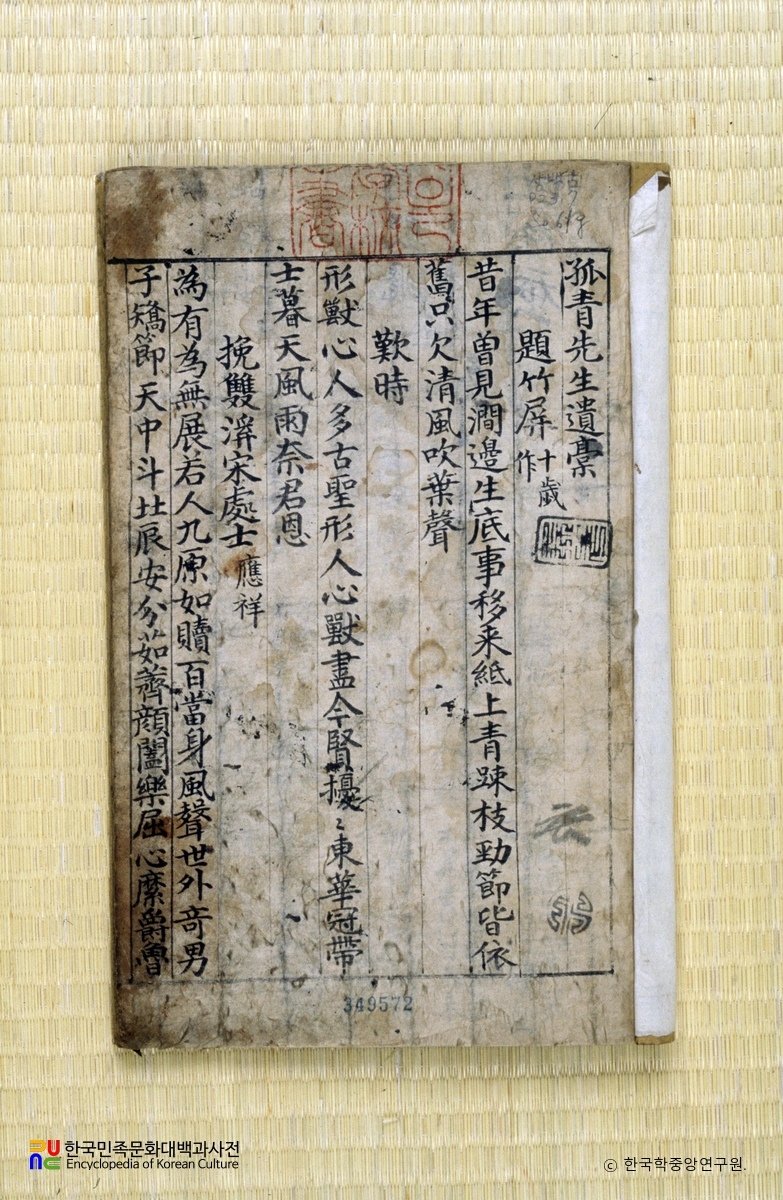 孤青先生遺藁
題竹屏 十歲作
昔年曾見澗邊生底事移来紙上青踈枝勁節皆依
舊只欠清風吹葉聲
歎時
形獸心人多古聖形人心獸盡今賢擾〻東華冠帶
士暮天風雨奈君恩
挽雙泲宋處士 應祥
為有為無展若人九原如贖百當身風聲世外奇男
子矯節天中斗北辰安分茹薺顔闔樂屈心縻爵魯
349572
한국민족문화대백과사전
Encyclopedia of Korean Culture
ⓒ 한국학중앙연구원.